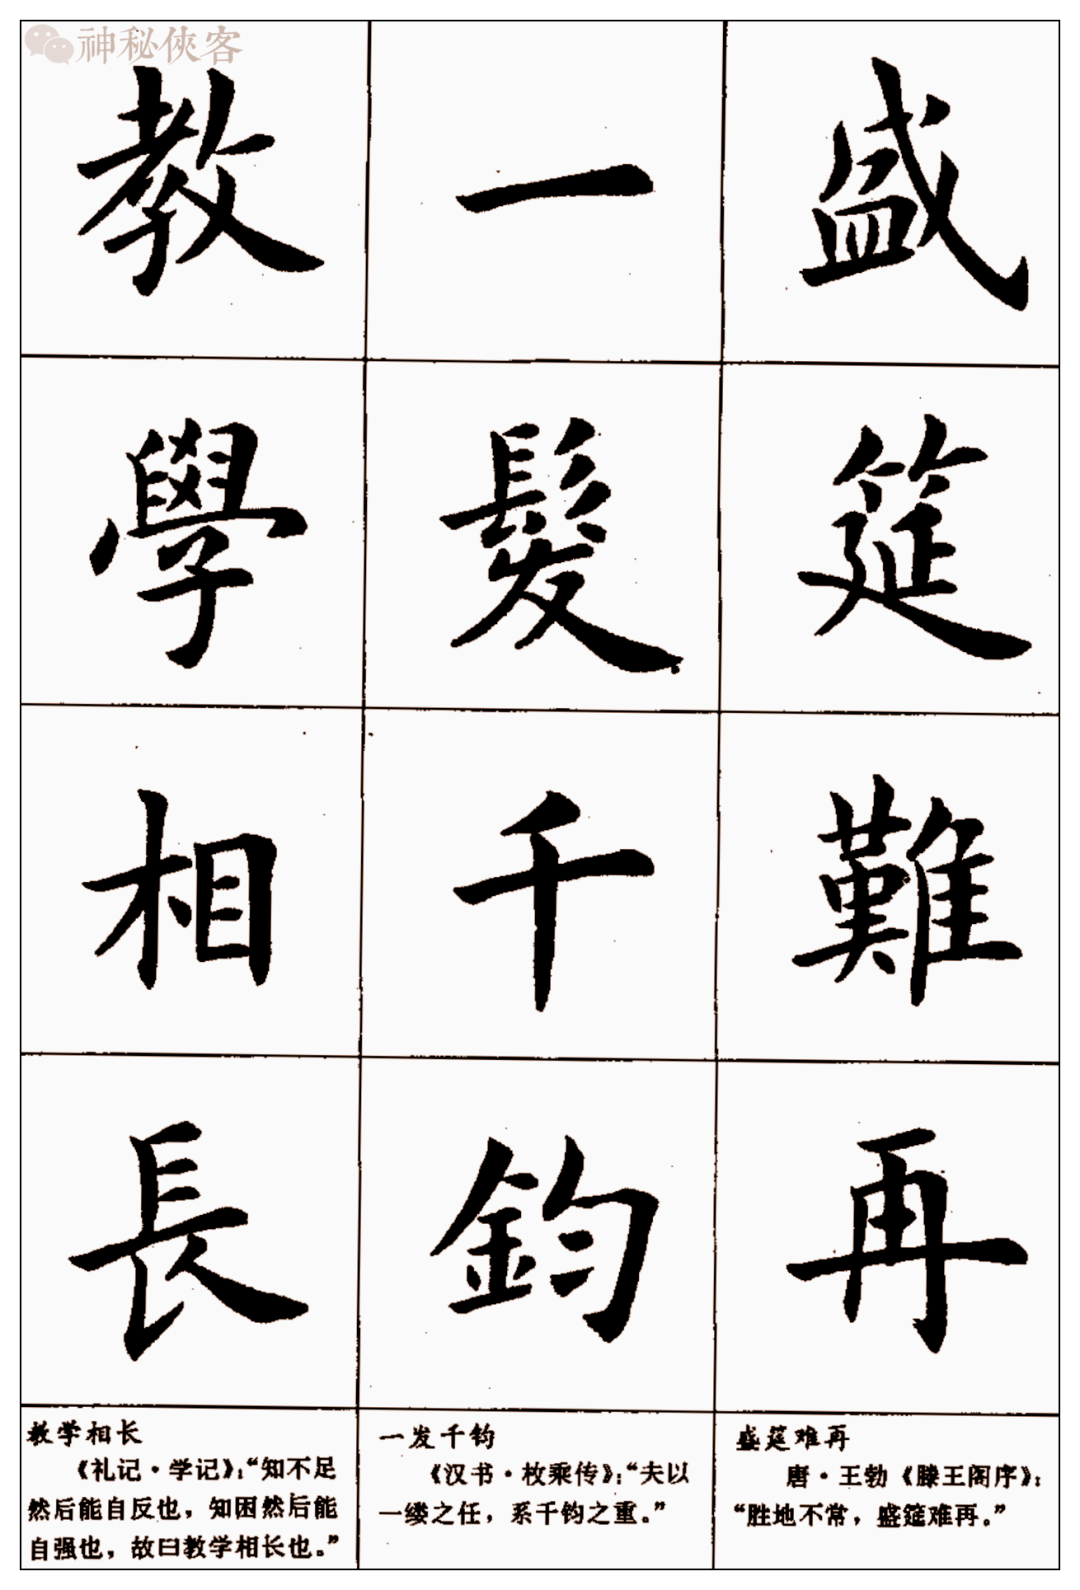 神秘侠客
盛筵難再
一髮千鈞
教學相長
盛筵难再
唐·王勃《滕王阁序》：
“胜地不常，盛筵难再。”
一发千钧
《汉书·枚乘传》：“夫以
一缕之任，系千钧之重。”
教学相长
《礼记·学记》：“知不足
然后能自反也，知困然后能
自强也，故曰教学相长也。”